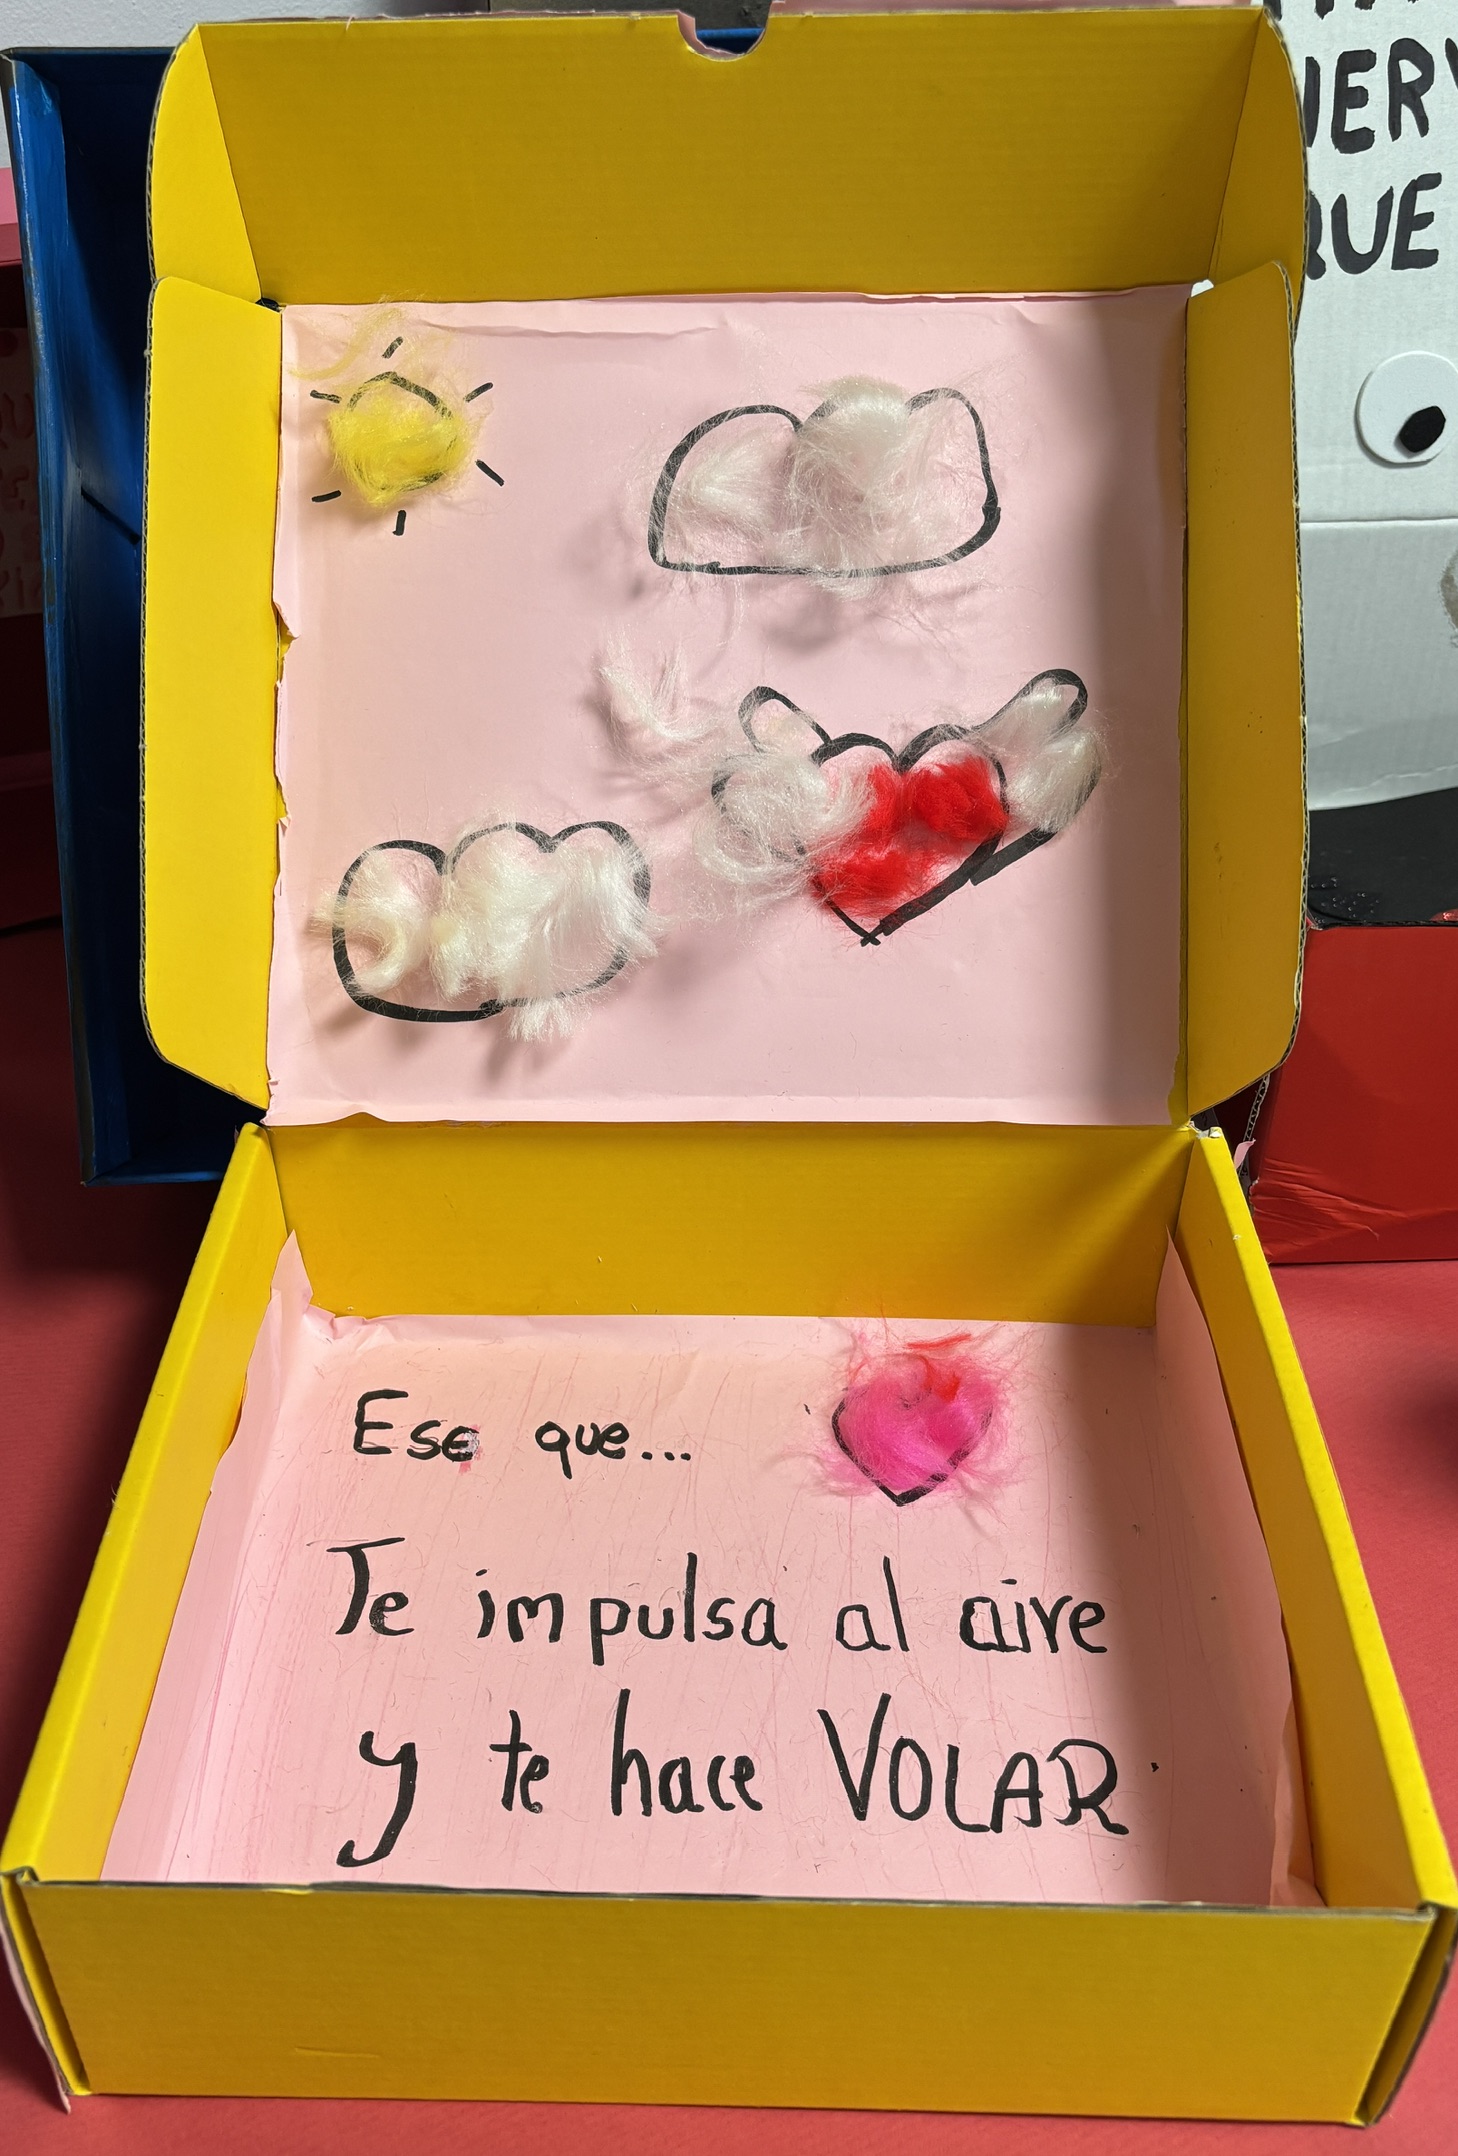 QUE
Ese que...
Te impulsa al aire
y te hace VOLAR